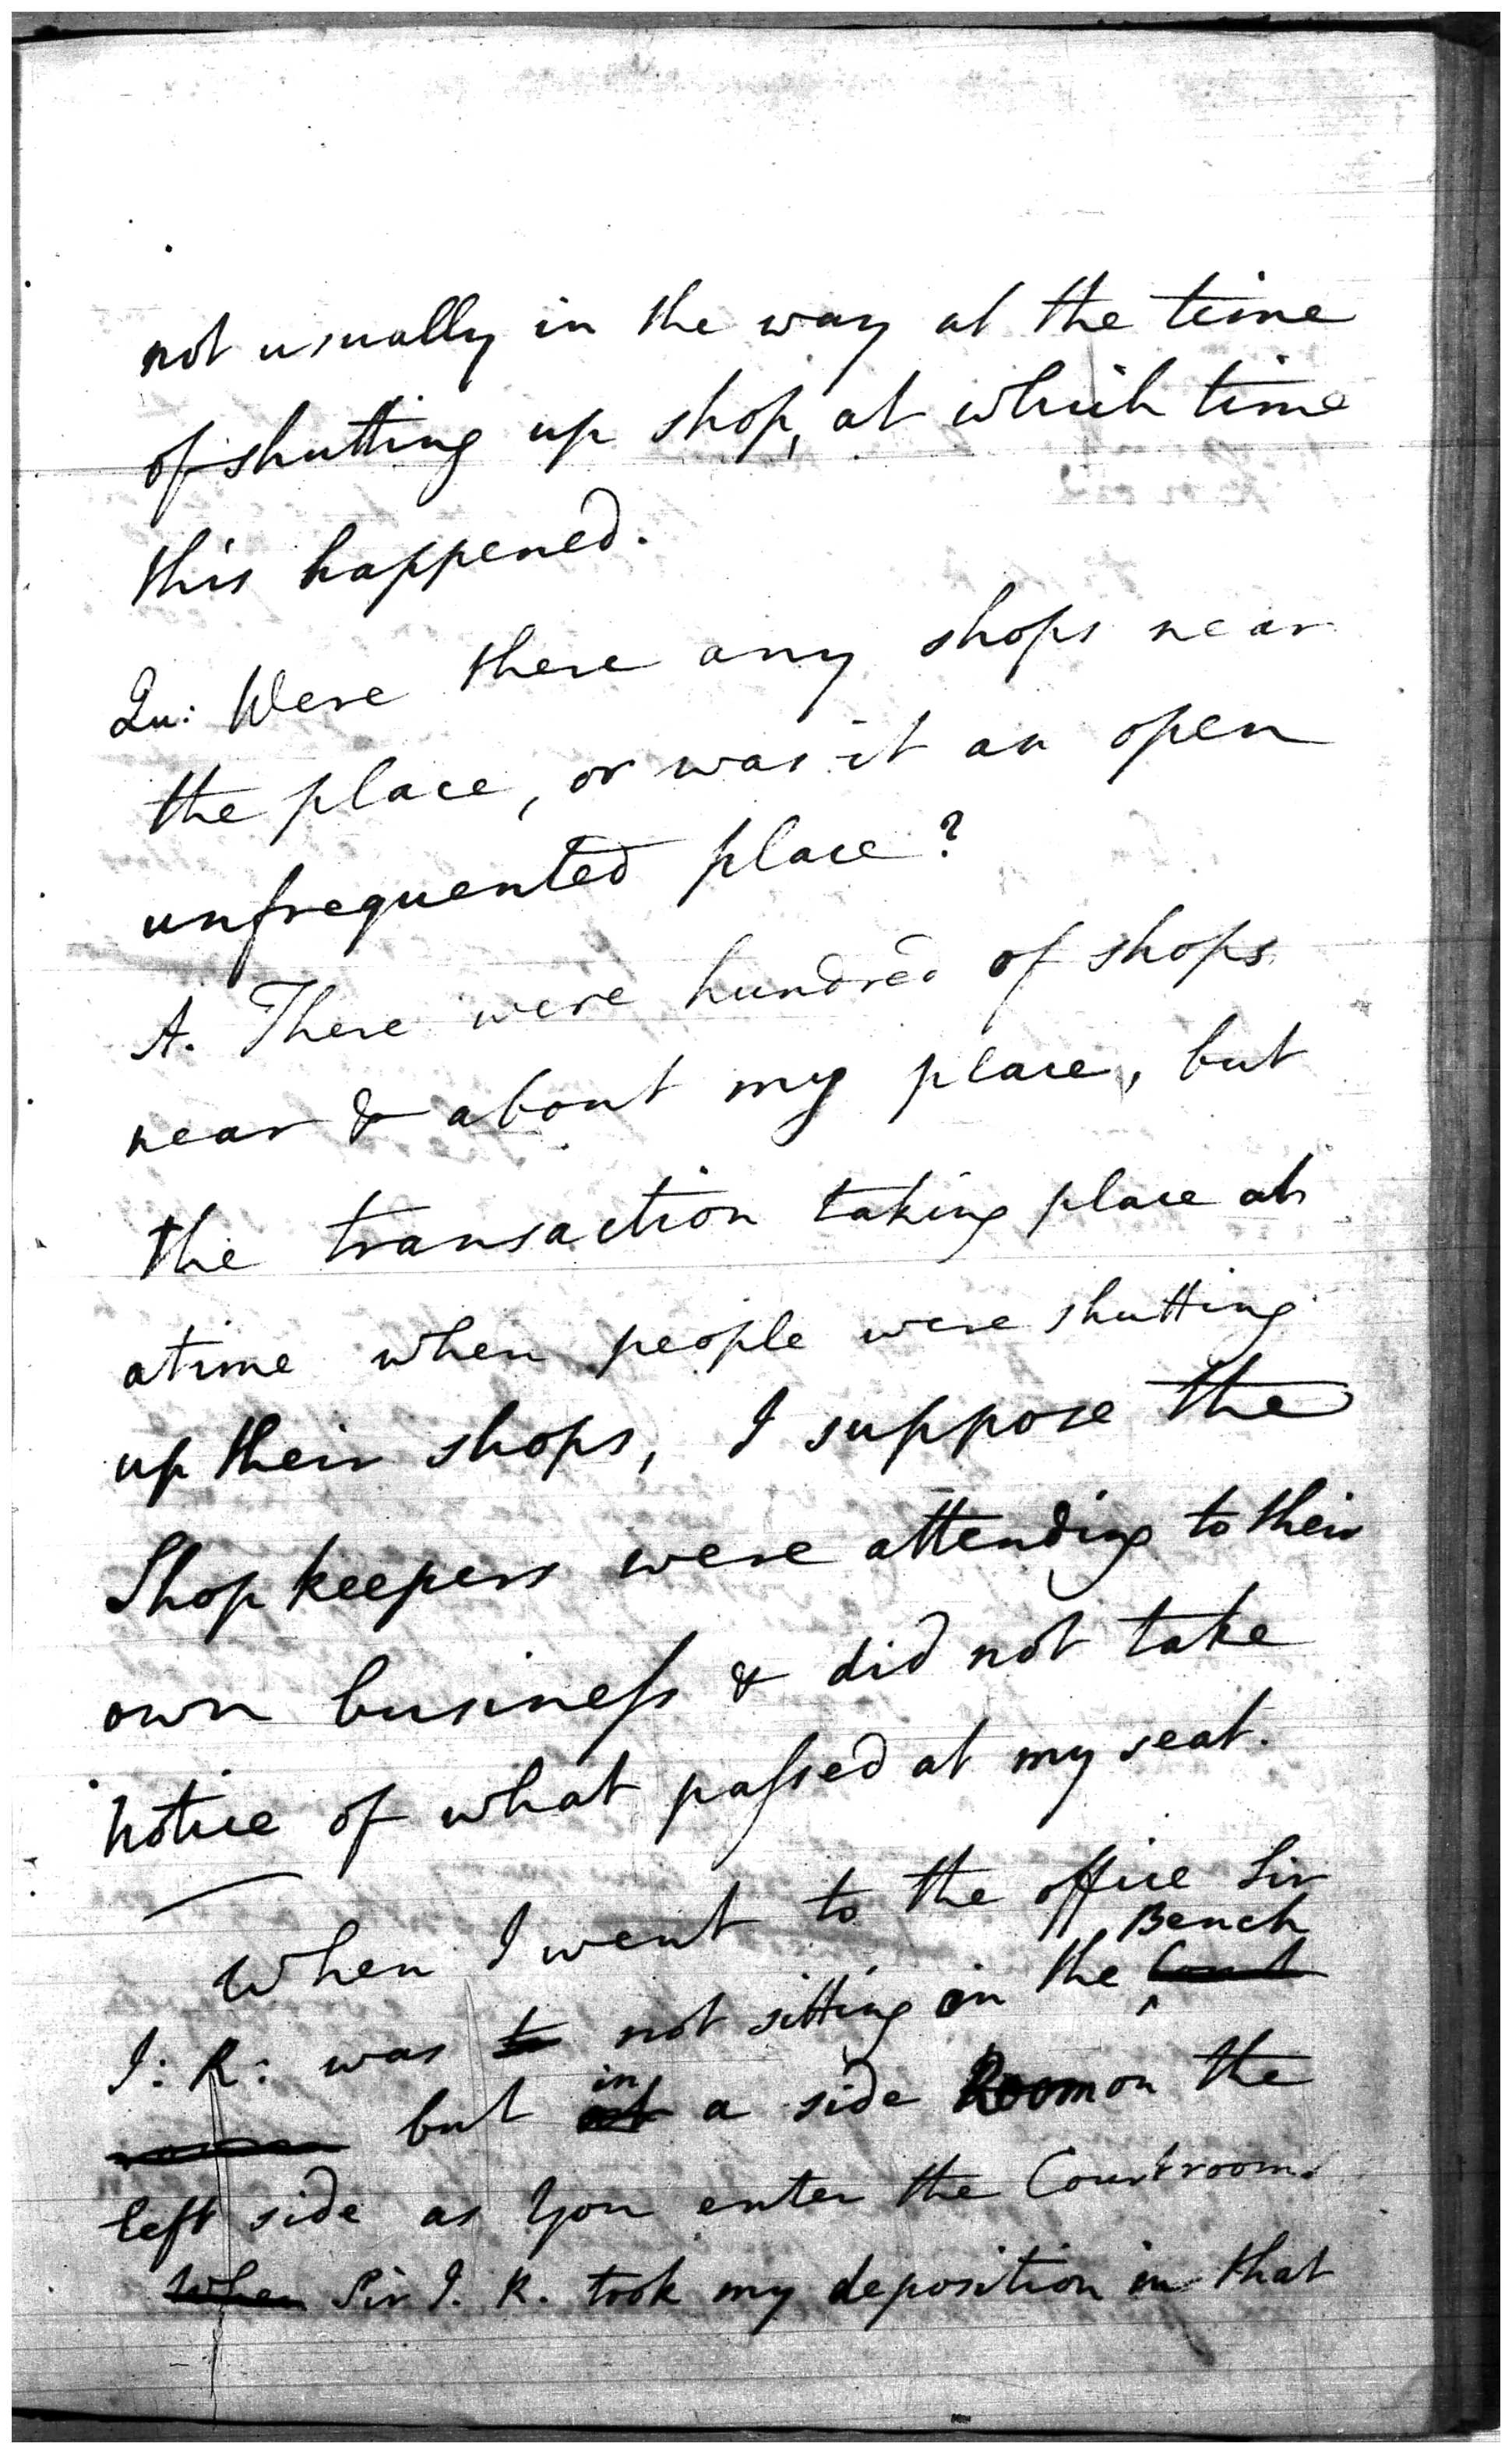 not usually in the way at the time
of shutting up shop, at which time
this happened.
Qu: Were there any shops near
the place, or was it an open
unfrequented place?
A. There were hundred of shops
near & about my place, but
the transaction taking place at
a time when people were shutting
up their shops, I suppose the
Shopkeepers were attending to their
own businefs & did not take
notice of what pafsed at my seat.
When I went to the office Sir
Bench
J: R: was to not sitting in the Court
in
but at a side Room on the
left side as you enter the Courtroom.
When Sir J. R. took my deposition in that